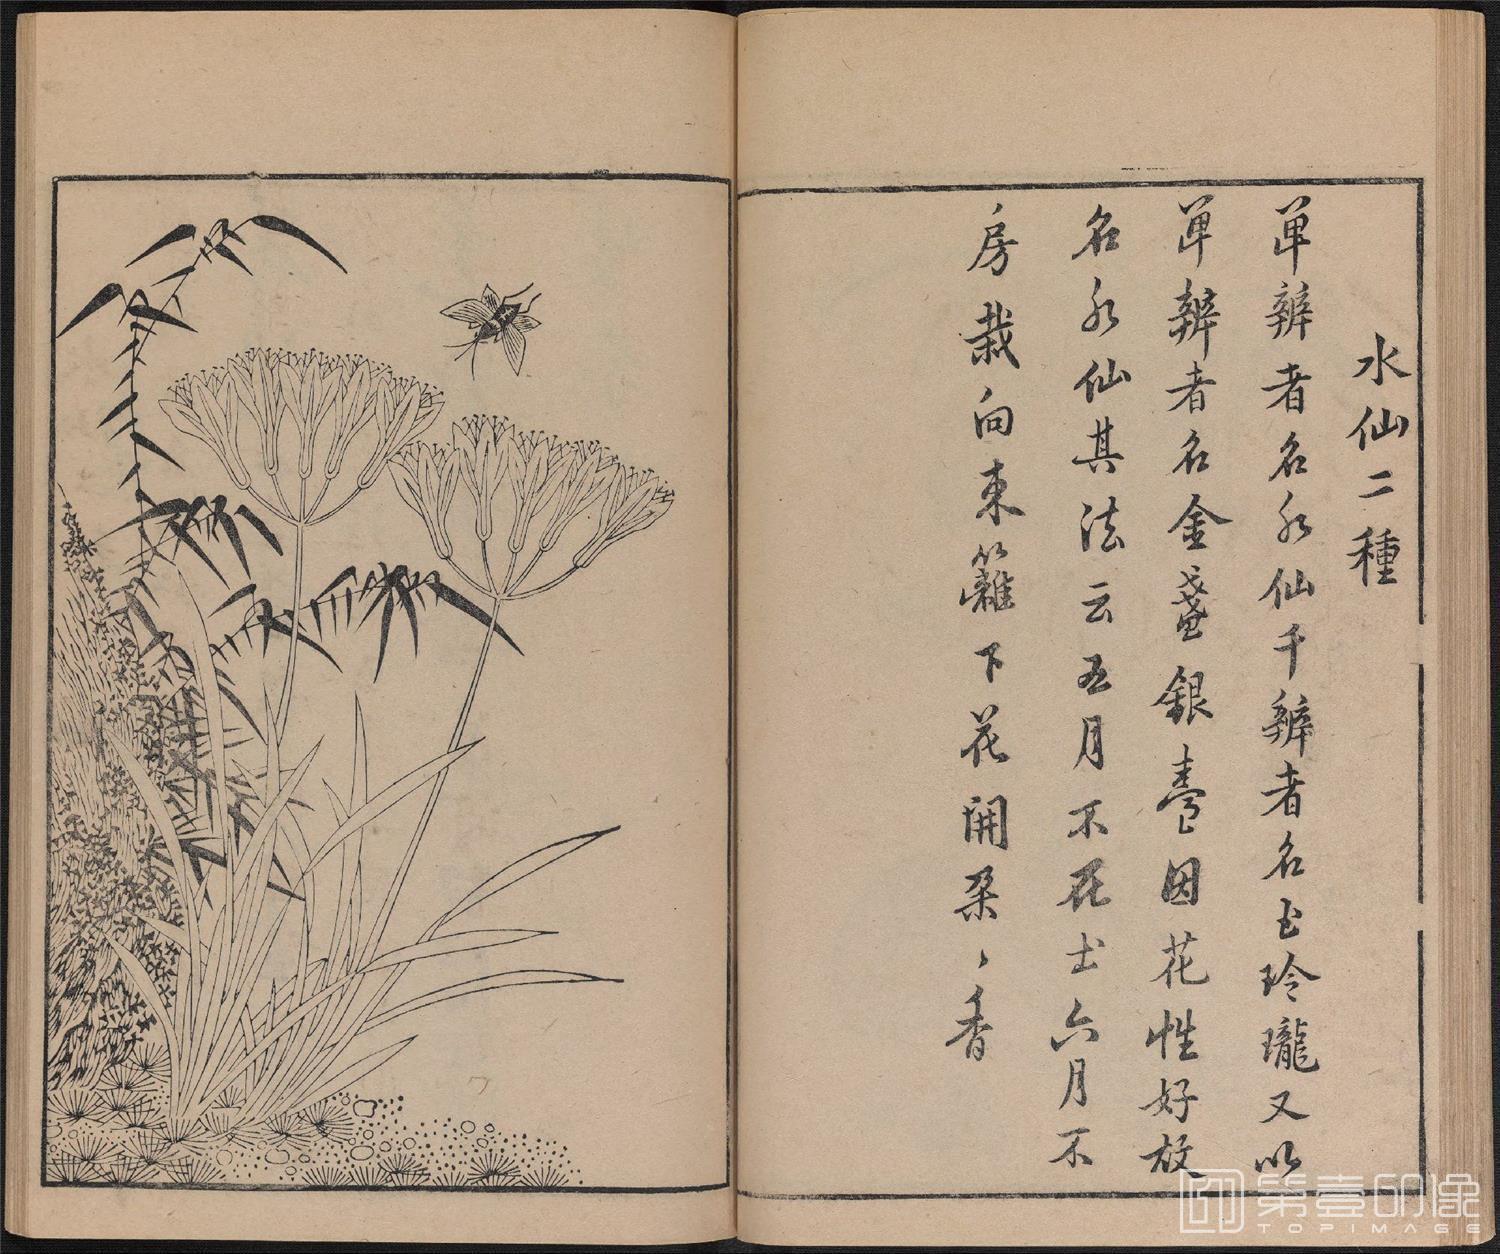 水仙二種
單辨者名水仙千辨者名玉玲瓏又以
單辨者名金盞銀臺因花性好故
名水仙其法云五月不在土六月不
房栽向東籬下花開朶〻香
第壹印像
TOPIMAGE